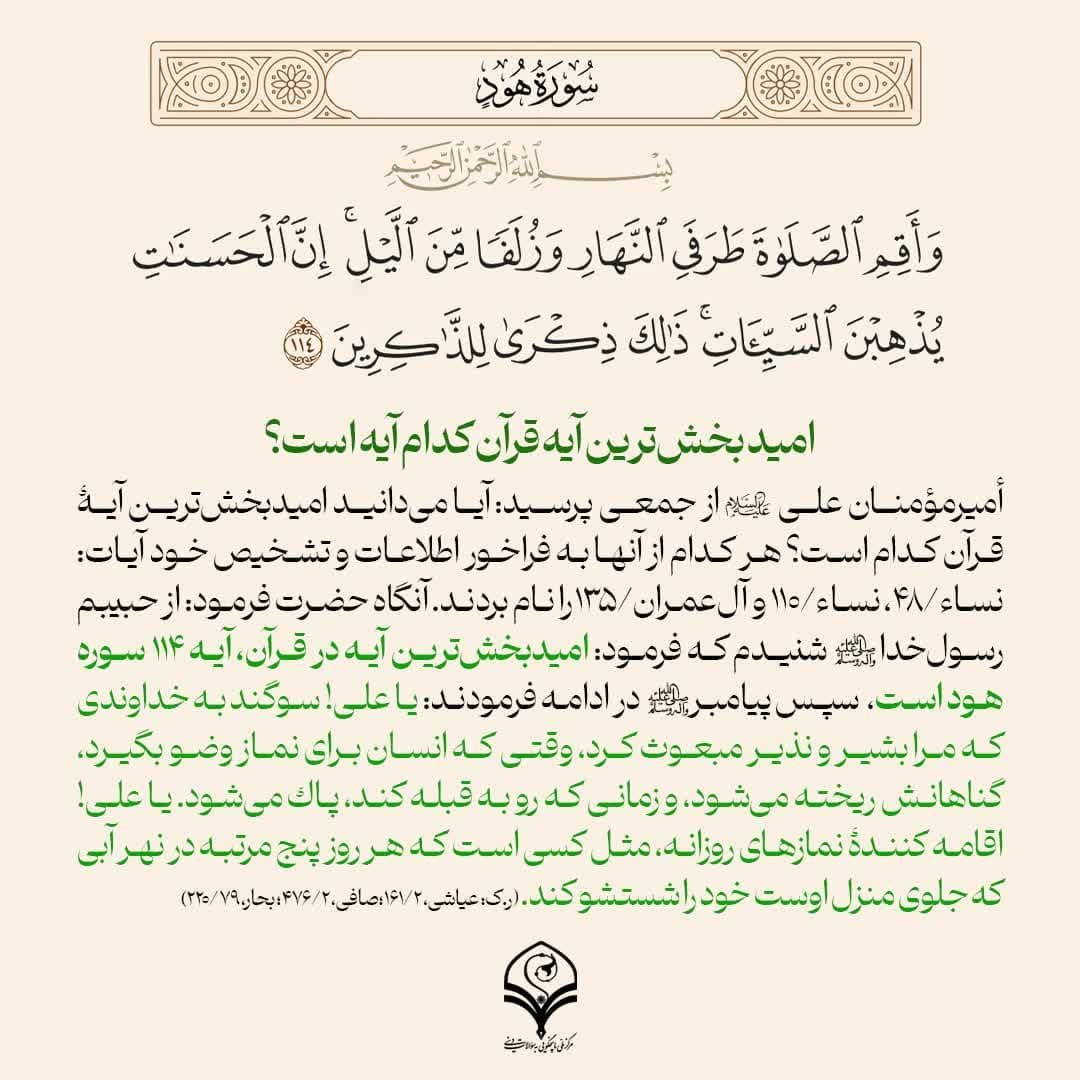 سُورَةُ هُودٍ
بِسْمِ ٱللَّهِ ٱلرَّحْمَٰنِ ٱلرَّحِيمِ
وَأَقِمِ ٱلصَّلَوٰةَ طَرَفَيِ ٱلنَّهَارِ وَزُلَفًا مِّنَ ٱلَّيْلِ ۚ إِنَّ ٱلْحَسَنَٰتِ
يُذْهِبْنَ ٱلسَّيِّـَٔاتِ ۚ ذَٰلِكَ ذِكْرَىٰ لِلذَّٰكِرِينَ ١١٤
امیدبخش‌ترین آیه قرآن کدام آیه است؟
أمیرمؤمنـان علـی علیه‌السلام از جمعـی پرسیـد: آیـا می‌دانیـد امیدبخش‌ترین آیـۀ
قرآن کـدام اسـت؟ هـر کـدام از آنهـا بـه فراخـور اطلاعـات و تشـخیص خـود آیـات:
نسـاء/۴۸، نسـاء/۱۱۰ و آل‌عمـران/۱۳۵ را نـام بردنـد. آنگاه حضـرت فرمـود: از حبیبـم
رسـول‌خدا ﷺ شنیـدم کـه فرمـود: امیدبخش‌تریـن آیـه در قـرآن، آیـه ۱۱۴ سـوره
هـود اسـت، سـپس پیامبـر ﷺ در ادامـه فرمودنـد: یـا علـی! سـوگند بـه خداونـدی
کـه مـرا بشیـر و نذیـر مبعـوث کـرد، وقتـی کـه انسـان بـرای نمـاز وضـو بگیـرد،
گناهانـش ریختـه می‌شـود، و زمانـی کـه رو بـه قبلـه کنـد، پـاك می‌شـود. یـا علـی!
اقامـه کننـدۀ نمازهـای روزانـه، مثـل کسـی اسـت کـه هـر روز پنـج مرتبـه در نهـر آبـی
که جلوی منزل اوست خود را شستشو کند. (ر.ک: عیاشی، ۱۶۱/۲؛ صافی، ۴۷۶/۲؛ بحار، ۲۲۰/۷۹)
مرکز ملی پاسخگویی به سؤالات دینی